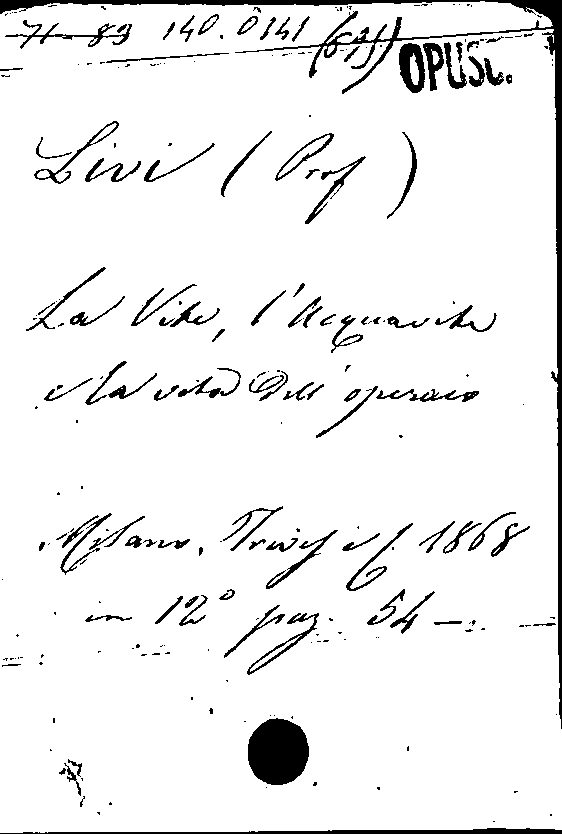 71-83 140.0141
OPUSC.
Livi (Prof)
La Vite, l'Acquavite
e la vita dell'operaio
Milano. Treves e C. 1868
in 12° pag. 54 —.